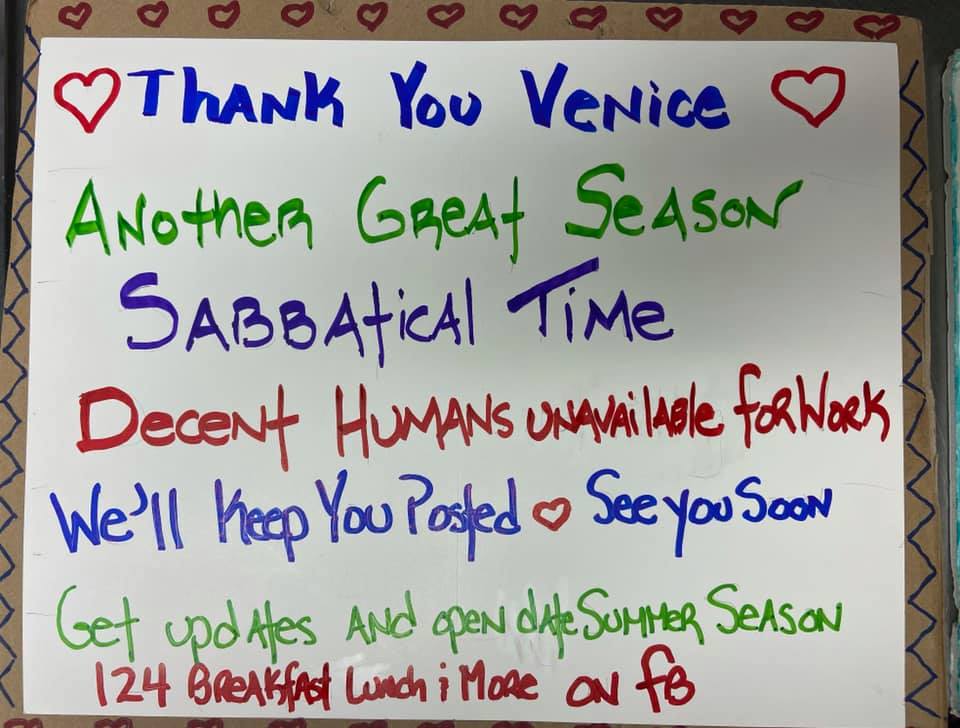 Thank You Venice
Another Great Season
Sabbatical Time
Decent Humans unavailable for Work
We'll Keep You Posted See you Soon
Get updates and open date Summer Season
124 Breakfast Lunch & More on fb